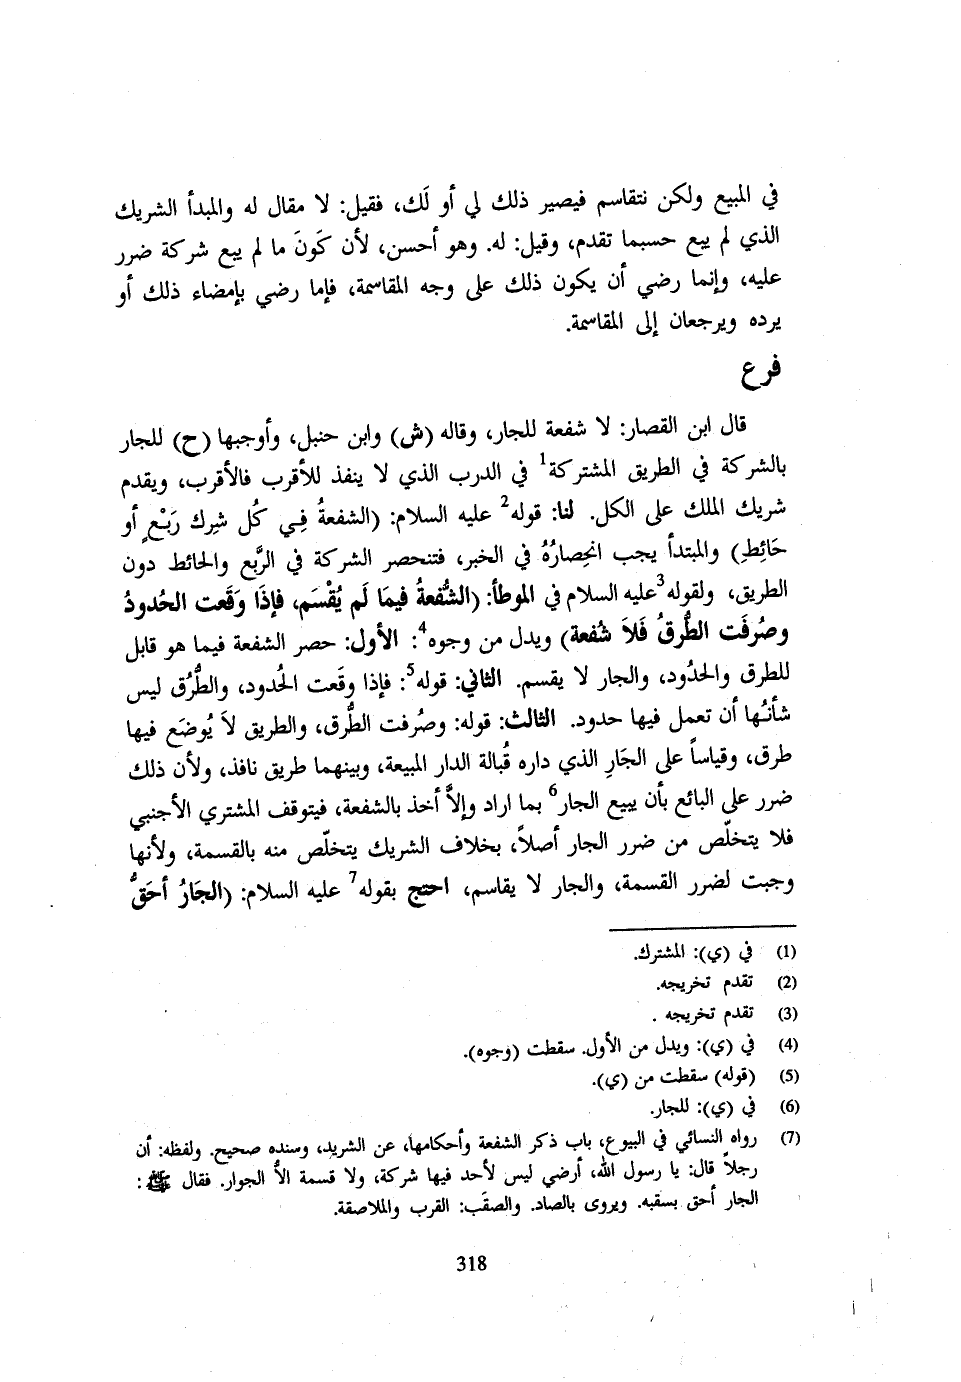 في المبيع ولكن نتقاسم فيصير ذلك لي أو لَك، فقيل: لا مقال له والمبدأ الشريك
الذي لم يبع حسبما تقدم، وقيل: له. وهو أحسن، لأن كَونَ ما لم يبع شركة ضرر
عليه، وإنما رضي أن يكون ذلك على وجه المقاسمة، فإما رضي بإمضاء ذلك أو
يرده ويرجعان إلى المقاسمة.
فرع
قال ابن القصار: لا شفعة للجار، وقاله (ش) وابن حنبل، وأوجبها (ح) للجار
بالشركة في الطريق المشتركة1 في الدرب الذي لا ينفذ للأقرب فالأقرب، ويقدم
شريك الملك على الكل. لنا: قوله2 عليه السلام: (الشفعةُ فِي كُل شِرك رَبْعٍ أو
حَائِطِ) والمبتدأ يجب انحِصارُهُ في الخبر، فتنحصر الشركة في الرَّبع والحائط دون
الطريق، ولقوله3 عليه السلام في الموطأ: (الشُّفعةُ فيمَا لَم يُقْسَم، فإذَا وَقَعت الحُدودُ
وصُرفَت الطُّرقُ فَلاَ شُفعة) ويدل من وجوه4: الأول: حصر الشفعة فيما هو قابل
للطرق والحدُود، والجار لا يقسم. الثاني: قوله5: فإذا وقَعت الحُدود، والطُّرُق ليس
شأنُها أن تعمل فيها حدود. الثالث: قوله: وصُرفت الطُّرق، والطريق لاَ يُوضَع فيها
طرق، وقياساً على الجَارِ الذي داره قُبالة الدار المبيعة، وبينهما طريق نافذ، ولأن ذلك
ضرر على البائع بأن يبيع الجار6 بما اراد وإلاَّ أخذ بالشفعة، فيتوقف المشتري الأجنبي
فلا يتخلّص من ضرر الجار أصلاً، بخلاف الشريك يتخلّص منه بالقسمة، ولأنها
وجبت لضرر القسمة، والجار لا يقاسم، احتج بقوله7 عليه السلام: (الجَارُ أحَقُّ
(1) في (ي): المشترك.
(2) تقدم تخريجه.
(3) تقدم تخريجه .
(4) في (ي): ويدل من الأول. سقطت (وجوه).
(5) (قوله) سقطت من (ي).
(6) في (ي): للجار.
(7) رواه النسائي في البيوع، باب ذكر الشفعة وأحكامها، عن الشريد، وسنده صحيح. ولفظه: أن
رجلاً قال: يا رسول الله، أرضي ليس لأحد فيها شركة، ولا قسمة الاَّ الجوار. فقال ﷺ:
الجار أحق بسقبه. ويروى بالصاد. والصقَب: القرب والملاصقة.
318